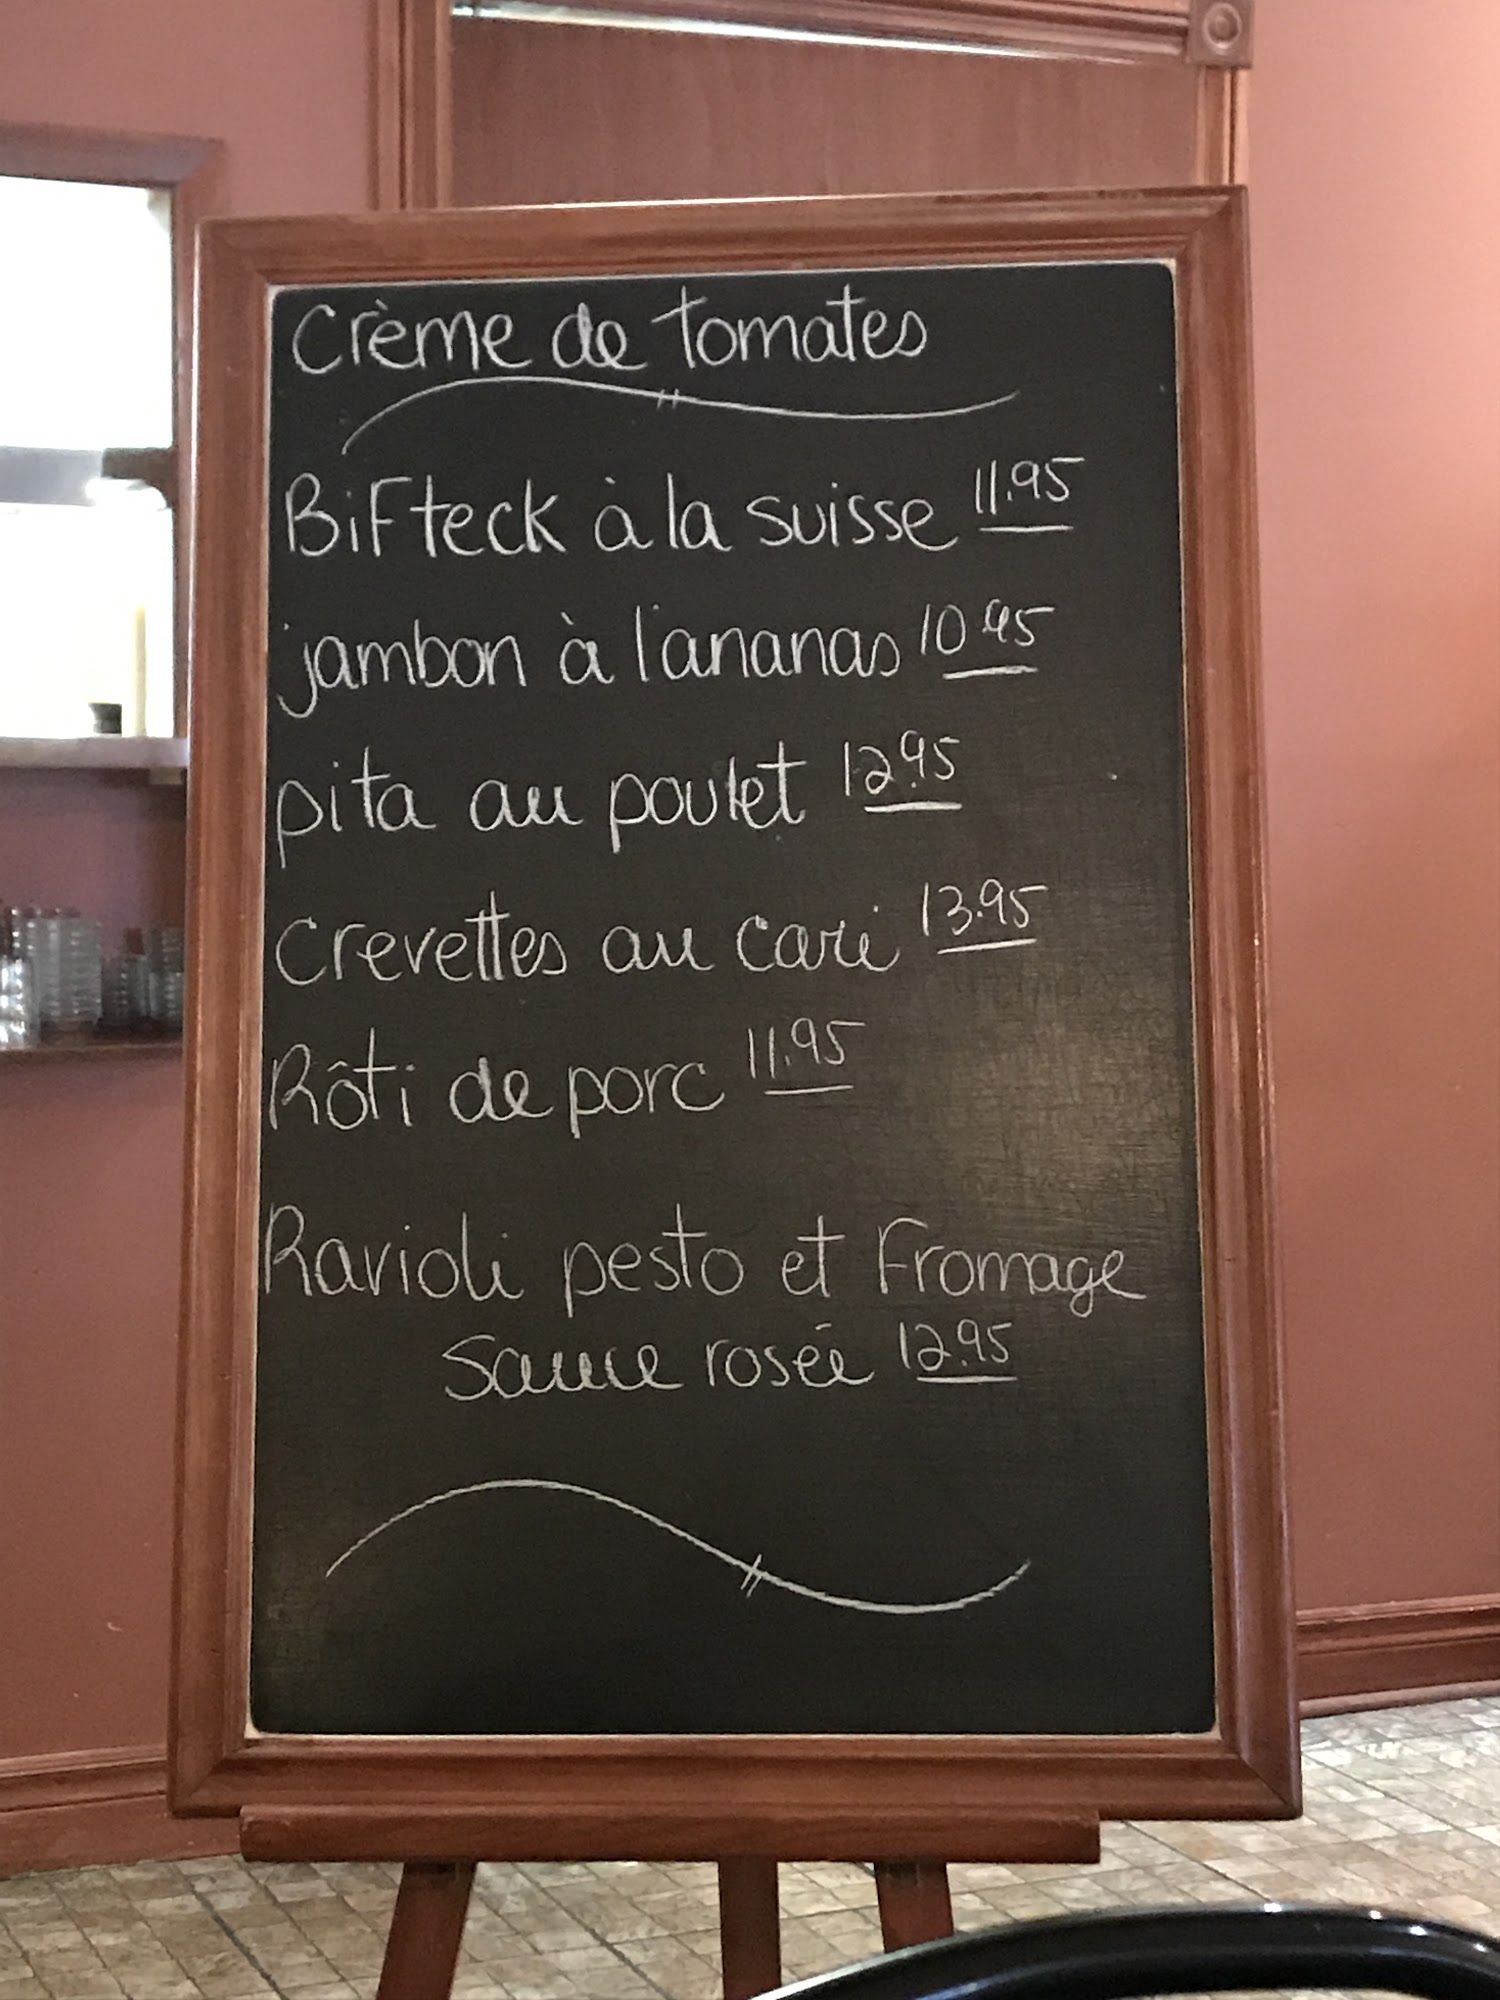 Crème de tomates
BiFteck à la suisse 11.95
jambon à l'ananas 10.95
pita au poulet 12.95
Crevettes au cari 13.95
Rôti de porc 11.95
Ravioli pesto et Fromage
Sauce rosée 12.95